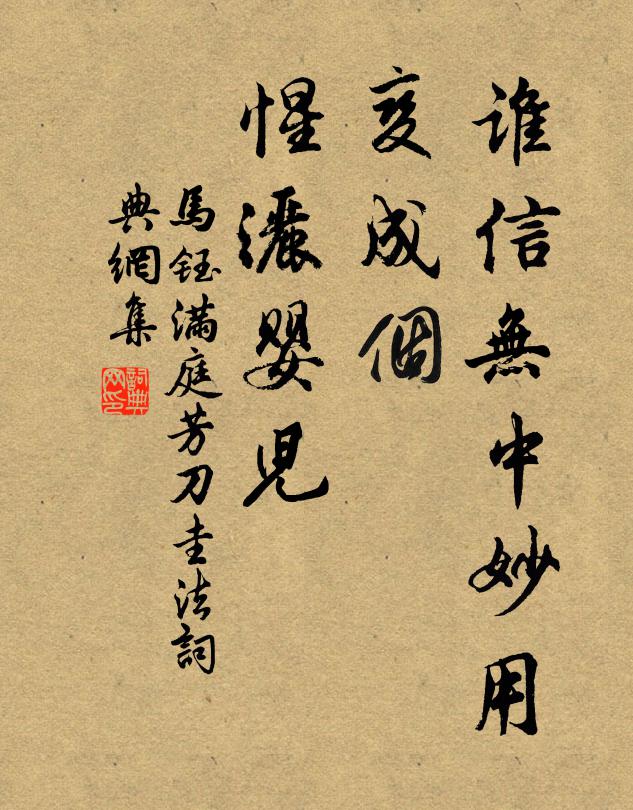 誰信無中妙用
變成個
惺灑嬰兒
馬鈺滿庭芳刀圭法詞
典網集
詞典網印